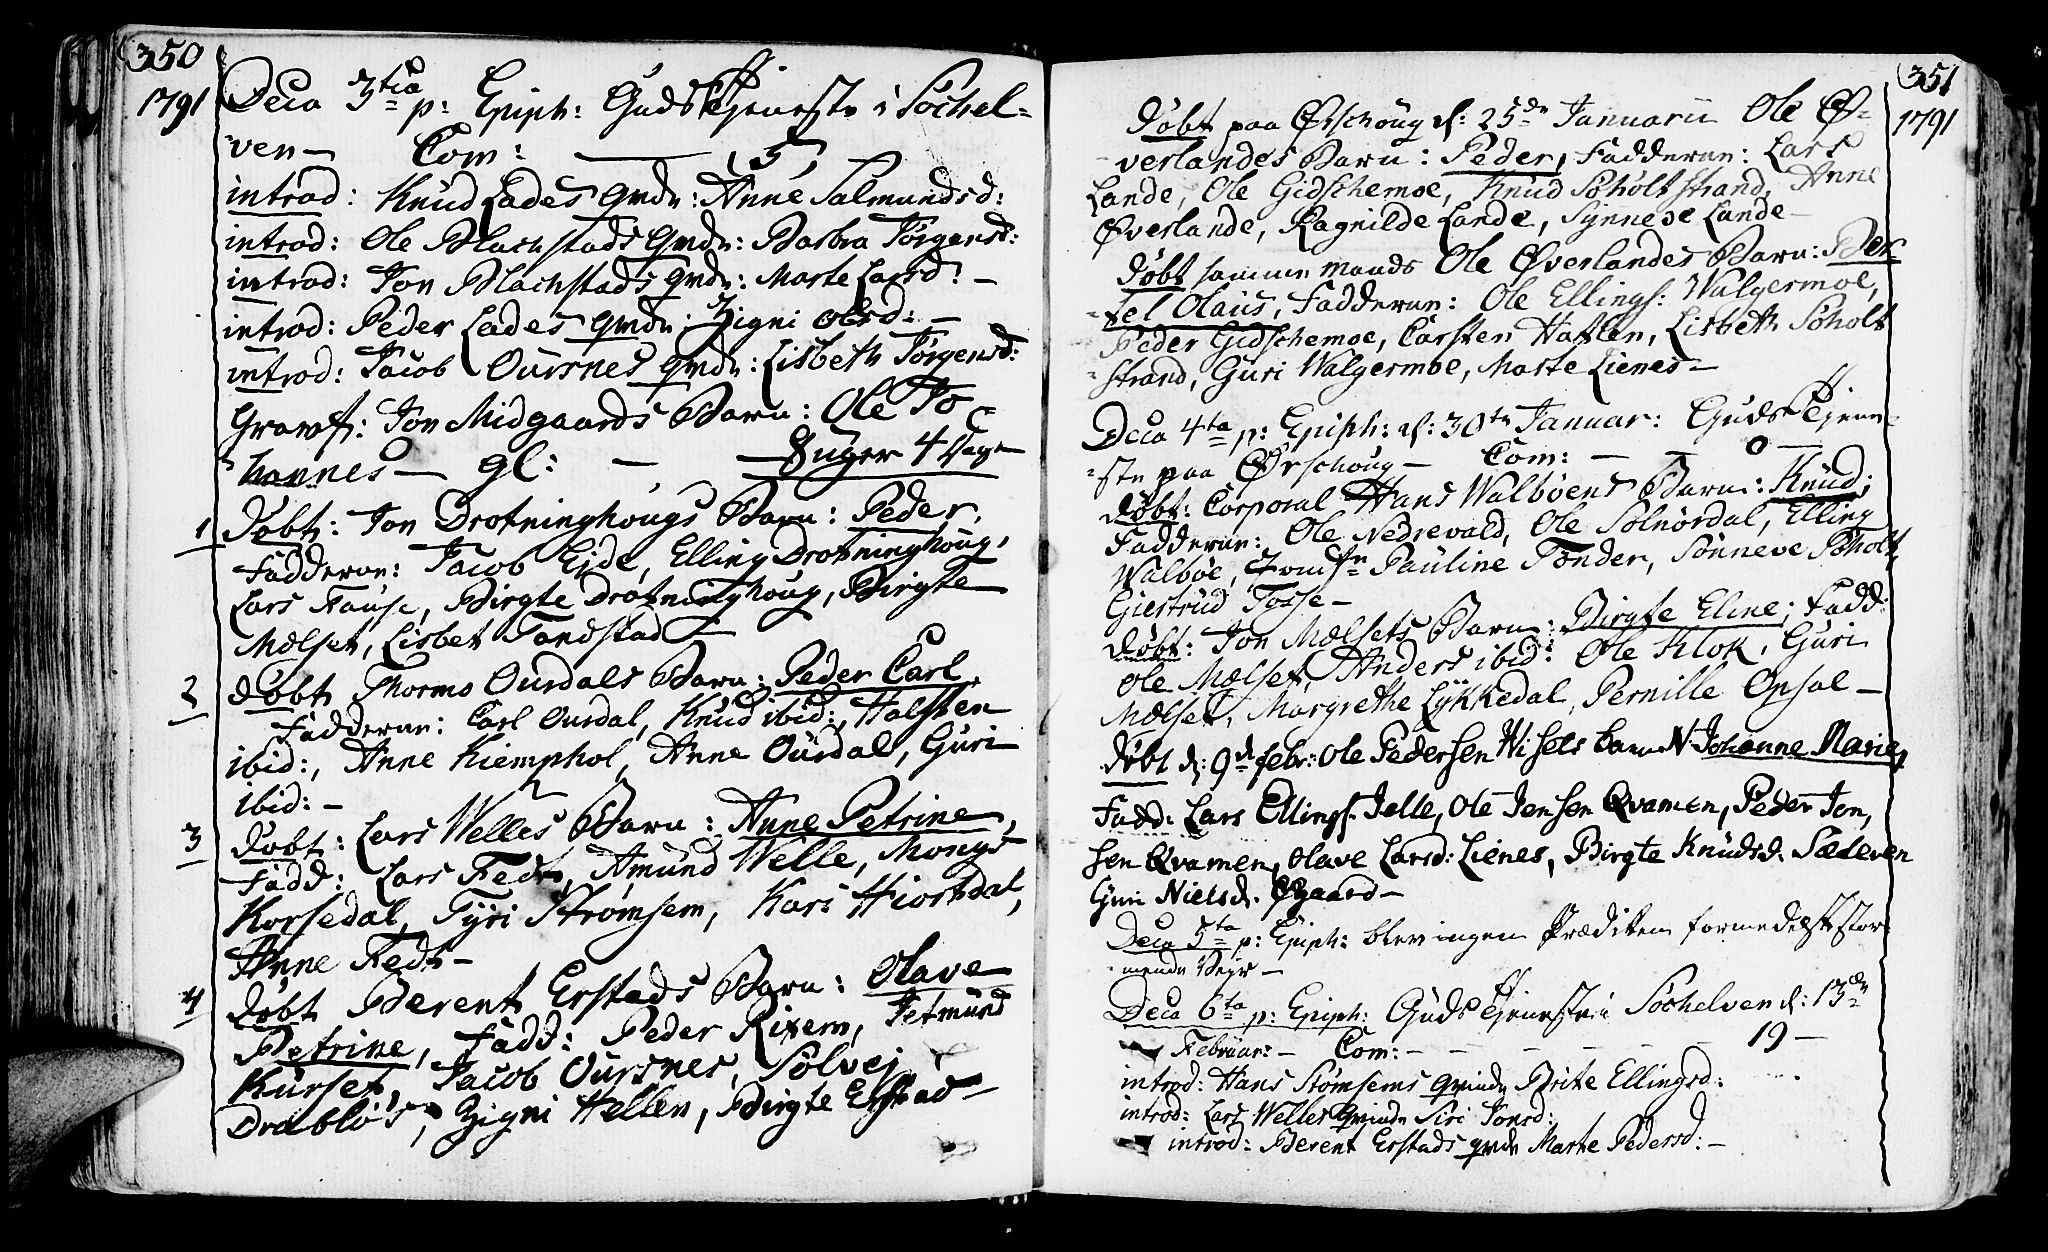 350
1791
Dca 3tia p: Epiph: Guds Tjeneste i Söchel-
ven — Com: — 5
introd: Knud Lades qvde: Anne Salmundsd:
introd: Ole Blachstads Qvde: Barbra Jørgensd:
introd: Jon Blachstads qvde: Marte Larsd: —
introd: Peder Lades qvde: Zigni Olsd: —
introd: Jacob Oursnes qvde: Lisbeth Jørgensd:
Gravf: Jon Midgaards Barn: Ole Jo-
hannes — gl: — 8 uger 4 Dage
1 Døbt: Jon Drotninghougs Barn: Peder,
Fadderne: Jacob Eide, Elling Drotninghoug,
Lars Hause, Birgte Drotninghoug, Birgte
Mælset, Lisbet Tandstad —
2 Døbt Thormo Ourdals Barn: Peder Carl,
Fadderne: Carl Ourdal, Knud ibid:, Halsten
ibid:, Anne Kiemphol, Anne Ourdal, Guri
ibid: —
3 Døbt: Lars Welles Barn: Anne Petrine,
Fadd: Lars Fedt, Amund Welle, Mongs
Korsedal, Tyri Strømsem, Kari Hiortdal,
Anne Fedt —
4 Døbt Berent Erstads Barn: Olave
Petrine, Fadd: Peder Rixem, Jetmund
Kurset, Jacob Oursnes, Sølvej
Drabløs, Zigni Hellen, Birgte Erstad —
351
1791
Døbt paa Ørschoug d: 25de Januarii Ole Ø-
verlandes Barn: Peder, Fadderne: Lars
Lande, Ole Gidschemoe, Knud Söholtstrand, Anne
Øverlande, Ragnilde Lande, Synneve Lande —
Døbt samme mands Ole Øverlandes Barn: Ber-
tel Olaus, Fadderne: Ole Ellings: Walgermoe,
Peder Gidschemoe, Carsten Hatlen, Lisbeth Söholt
strand, Guri Walgermoe, Marte Lienes —
Dca 4ta p: Epiph: d: 30te Januar: Guds Tjene-
ste paa Ørschoug — Com: — — 0 —
Døbt: Corporal Hans Walbøens Barn: Knud;
Fadderne: Ole Nedrevald, Ole Solnördal, Elling
Walbøe, Jomfr Pauline Tønder, Sönneve Söholt,
Giertrud Tosse —
Døbt: Jon Mælsets Barn: Birgte Eline; Fadd:
Ole Mælset, Anders ibid: Ole Klok, Guri
Mælset, Margrethe Lykkedal, Pernille Opsal —
Døbt d: 9d febr: Ole Pedersen Wisets barn N. Johanne Marie,
Fadd: Lars Ellings. Jelle, Ole Jensen Qvamen, Peder Jon,
sen Qvamen, Olave Larsd: Lienes, Birgte Knudsd. Sæteren
Guri Nielsd. Øgaard —
Dca 5ta p: Epiph: blev ingen Prædiken formedelst stor-
mende Vejr —
Dca 6ta p: Epiph: Guds Tjeneste i Söchelven d: 13de
Februar: — Com: — — — — — 19 —
introd: Hans Strømsems qvinde Brite Ellingsd:
introd: Lars Welles Qvinde Siri Jonsd:
introd: Berent Erstads qvde Marte Pedersd: —